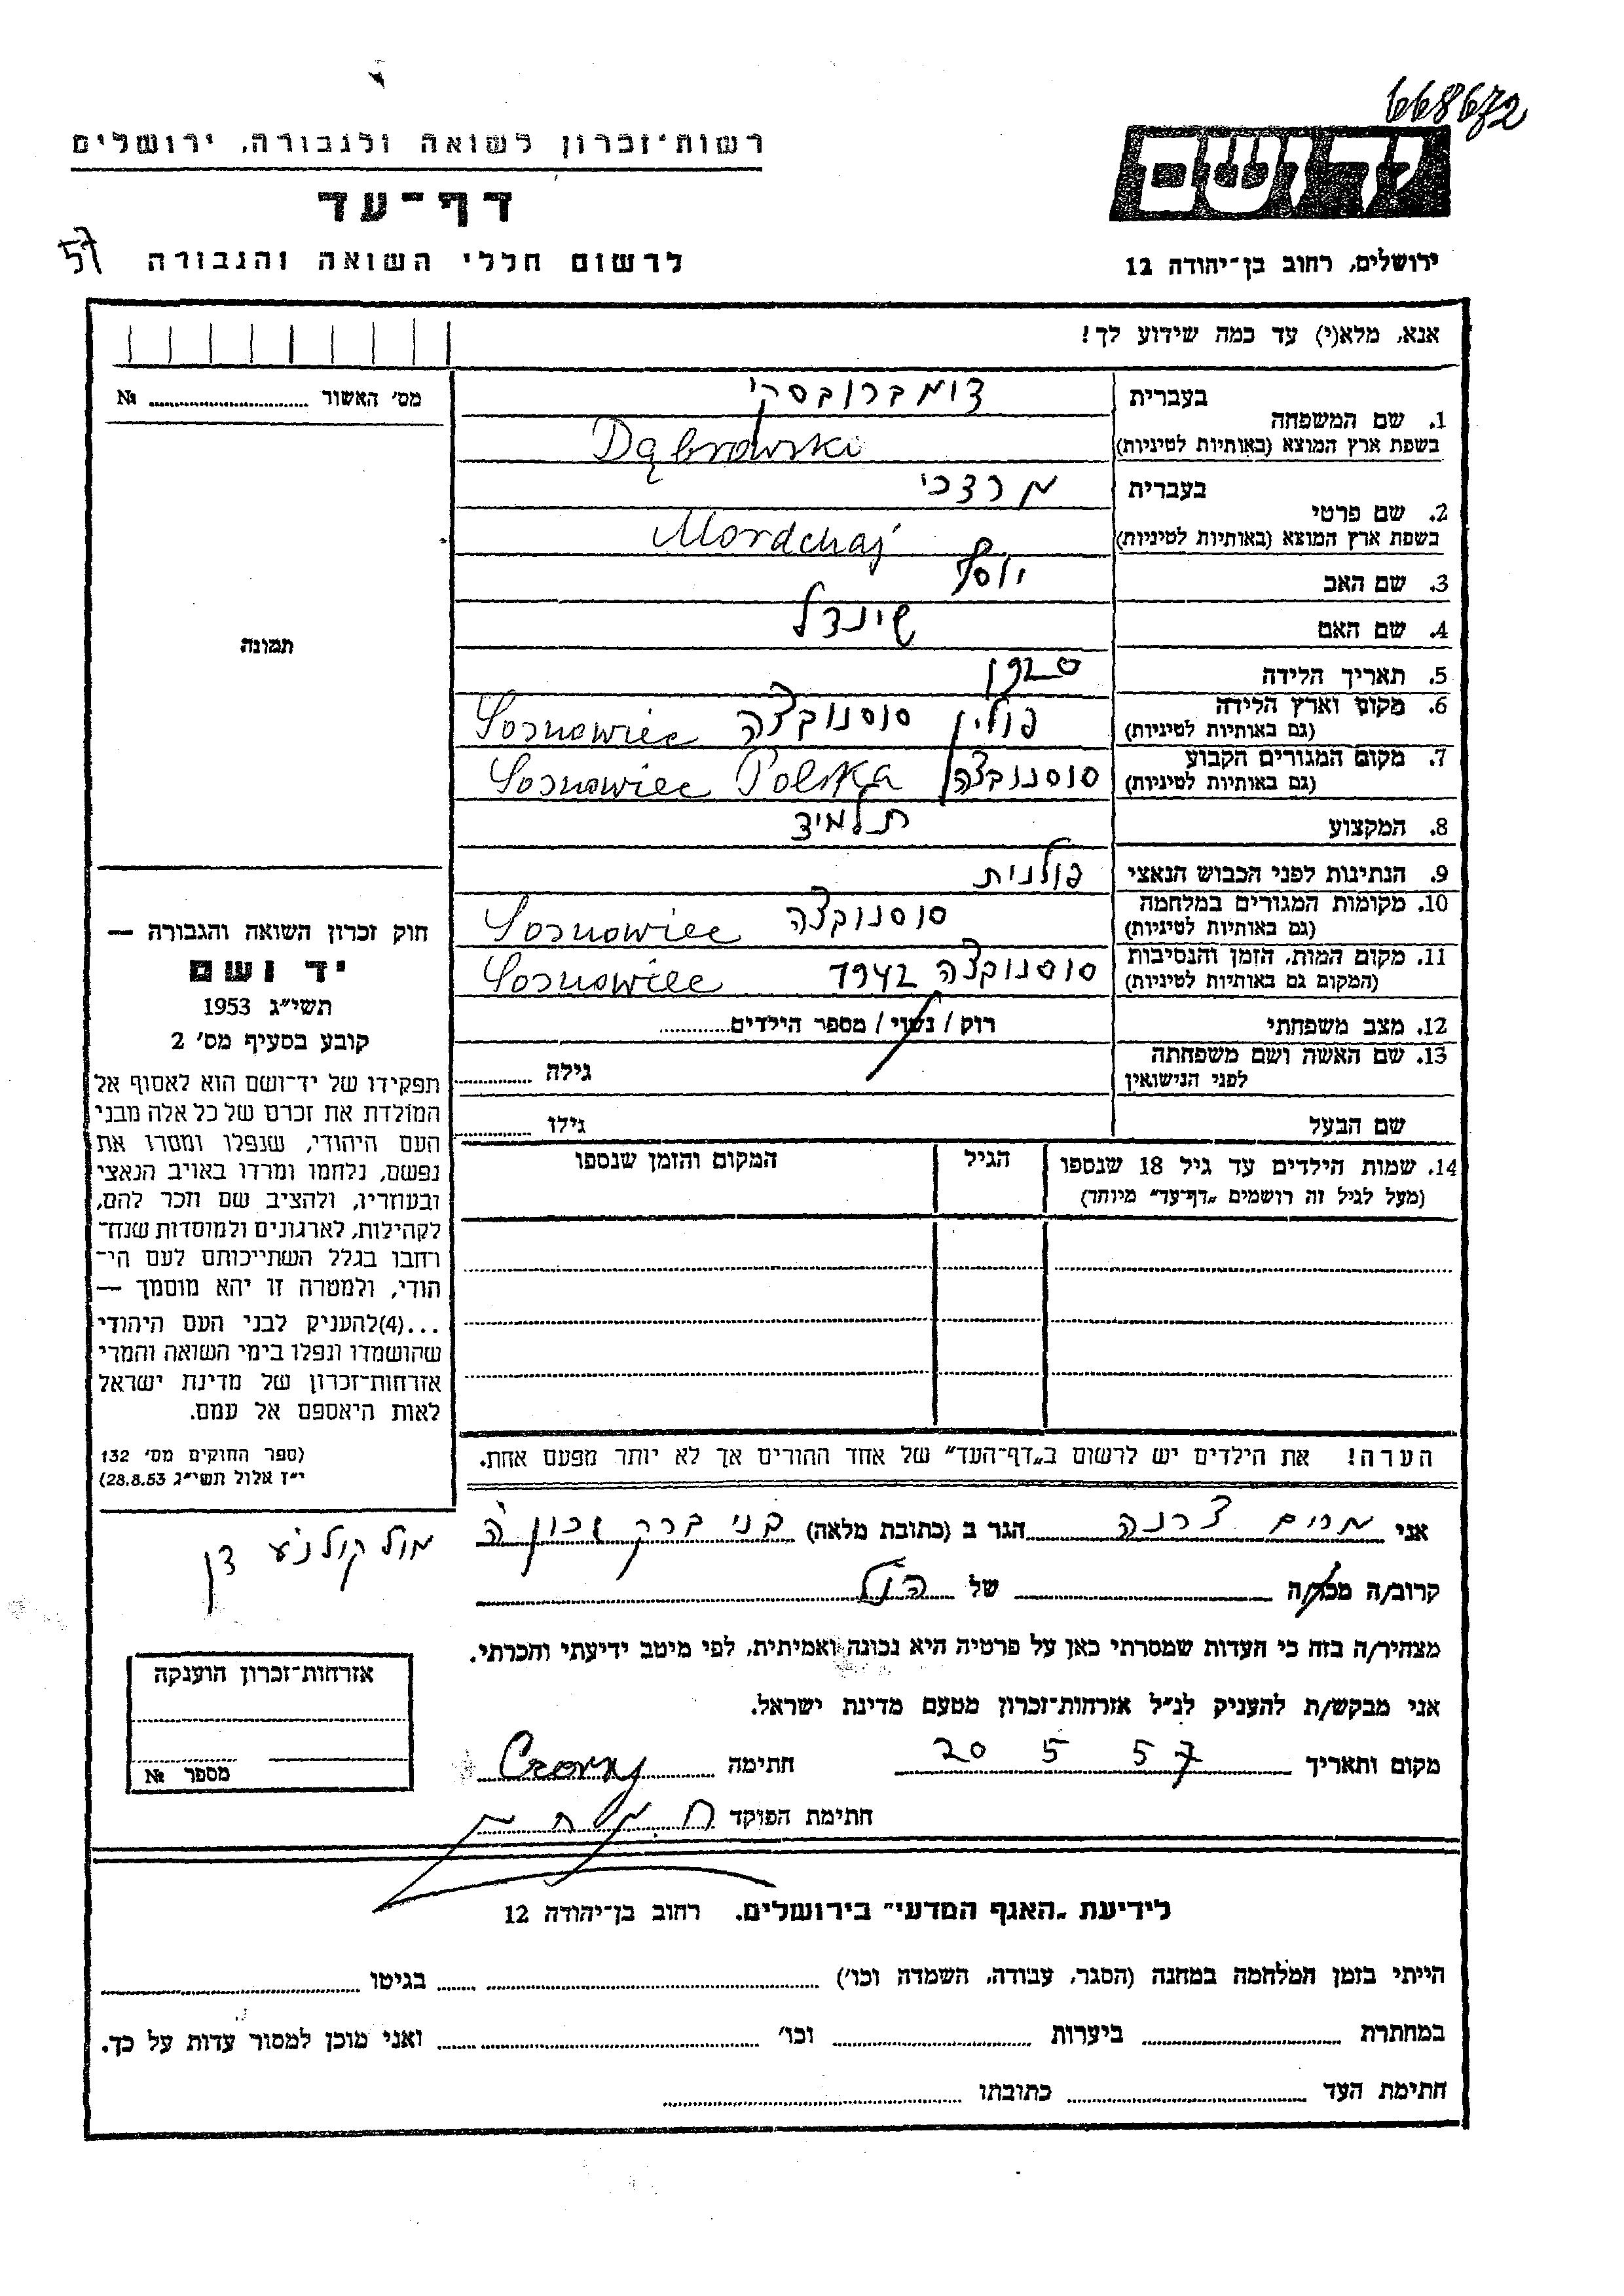 668672
רשות-זכרון לשואה ולגבורה, ירושלים
דף-עד
לרשום חללי השואה והגבורה
57
ירושלים, רחוב בן-יהודה 12
אנא, מלא(י) עד כמה שידוע לך!
מס' האשור № 
1. שם המשפחה
בעברית דומברובסקי
בשפת ארץ המוצא (באותיות לטיניות) Dąbrowski
2. שם פרטי
בעברית מרדכי
בשפת ארץ המוצא (באותיות לטיניות) Mordchaj
3. שם האב יוסף
4. שם האם שינדל
תמונה
5. תאריך הלידה
6. מקום וארץ הלידה
(גם באותיות לטיניות) פולין סוסנובצה Sosnowiec
7. מקום המגורים הקבוע
(גם באותיות לטיניות) סוסנובצה Sosnowiec Polska
8. המקצוע תלמיד
9. הנתינות לפני הכבוש הנאצי פולנית
10. מקומות המגורים במלחמה
(גם באותיות לטיניות) סוסנובצה Sosnowiec
11. מקום המות, הזמן והנסיבות
(המקום גם באותיות לטיניות) סוסנובצה 1942 Sosnowiec
12. מצב משפחתי רוק / נשוי / מספר הילדים
13. שם האשה ושם משפחתה
לפני הנישואין גילה
שם הבעל גילו
14. שמות הילדים עד גיל 18 שנספו
(מעל לגיל זה רושמים „דף-עד" מיוחד)
הגיל
המקום והזמן שנספו
חוק זכרון השואה והגבורה —
יד ושם
תשי"ג 1953
קובע בסעיף מס' 2
תפקידו של יד-ושם הוא לאסוף אל
המולדת את זכרם של כל אלה מבני
העם היהודי, שנפלו ומסרו את
נפשם, נלחמו ומרדו באויב הנאצי
ובעוזריו, ולהציב שם וזכר להם,
לקהילות, לארגונים ולמוסדות שנח-
רחבו בגלל השתייכותם לעם הי-
הודי, ולמטרה זו יהא מוסמך —
...(4)להעניק לבני העם היהודי
שהושמדו ונפלו בימי השואה והמרי
אזרחות-זכרון של מדינת ישראל
לאות היאספם אל עמם.
(ספר החוקים מס' 132
י"ז אלול תשי"ג 28.8.53)
הערה! את הילדים יש לרשום ב„דף-העד" של אחד ההורים אך לא יותר מפעם אחת.
אני מרים צרנה הגר ב (כתובת מלאה) בני ברק שכון ה'
מול קולנע דן
קרוב/ה מכר/ה של הנ"ל
מצהיר/ה בזה כי העדות שמסרתי כאן על פרטיה היא נכונה ואמיתית, לפי מיטב ידיעתי והכרתי.
אני מבקש/ת להעניק לנ"ל אזרחות-זכרון מטעם מדינת ישראל.
מקום ותאריך 20 5 57 חתימה Czorny
חתימת הפוקד
אזרחות-זכרון הוענקה
מספר №
לידיעת „האגף המדעי" בירושלים. רחוב בן-יהודה 12
הייתי בזמן המלחמה במחנה (הסגר, עבודה, השמדה וכו') בגיטו
במחתרת ביערות וכו' ואני מוכן למסור עדות על כך.
חתימת העד כתובתו